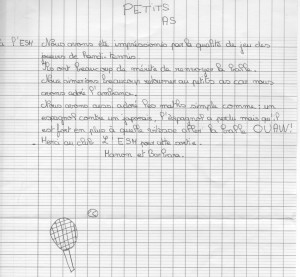 PETITS
AS
à l'ESM Nous avons été impressionné par la qualité de jeu des
joueurs de handi tennis.
Ils ont beaucoup de mérite de renvoyer la balle.
Nous aimerions beaucoup retourner au petits as car nous
avons adoré l'ambiance.
Nous avons aussi adoré les matchs simple comme un
espagnol contre un japonais. l'espagnol a perdu mais qu'il
est fort en plus à quelle vitesse allait la balle OUAW!
Merci au club L'ESM pour cette sortie.
Manon et Barbara.